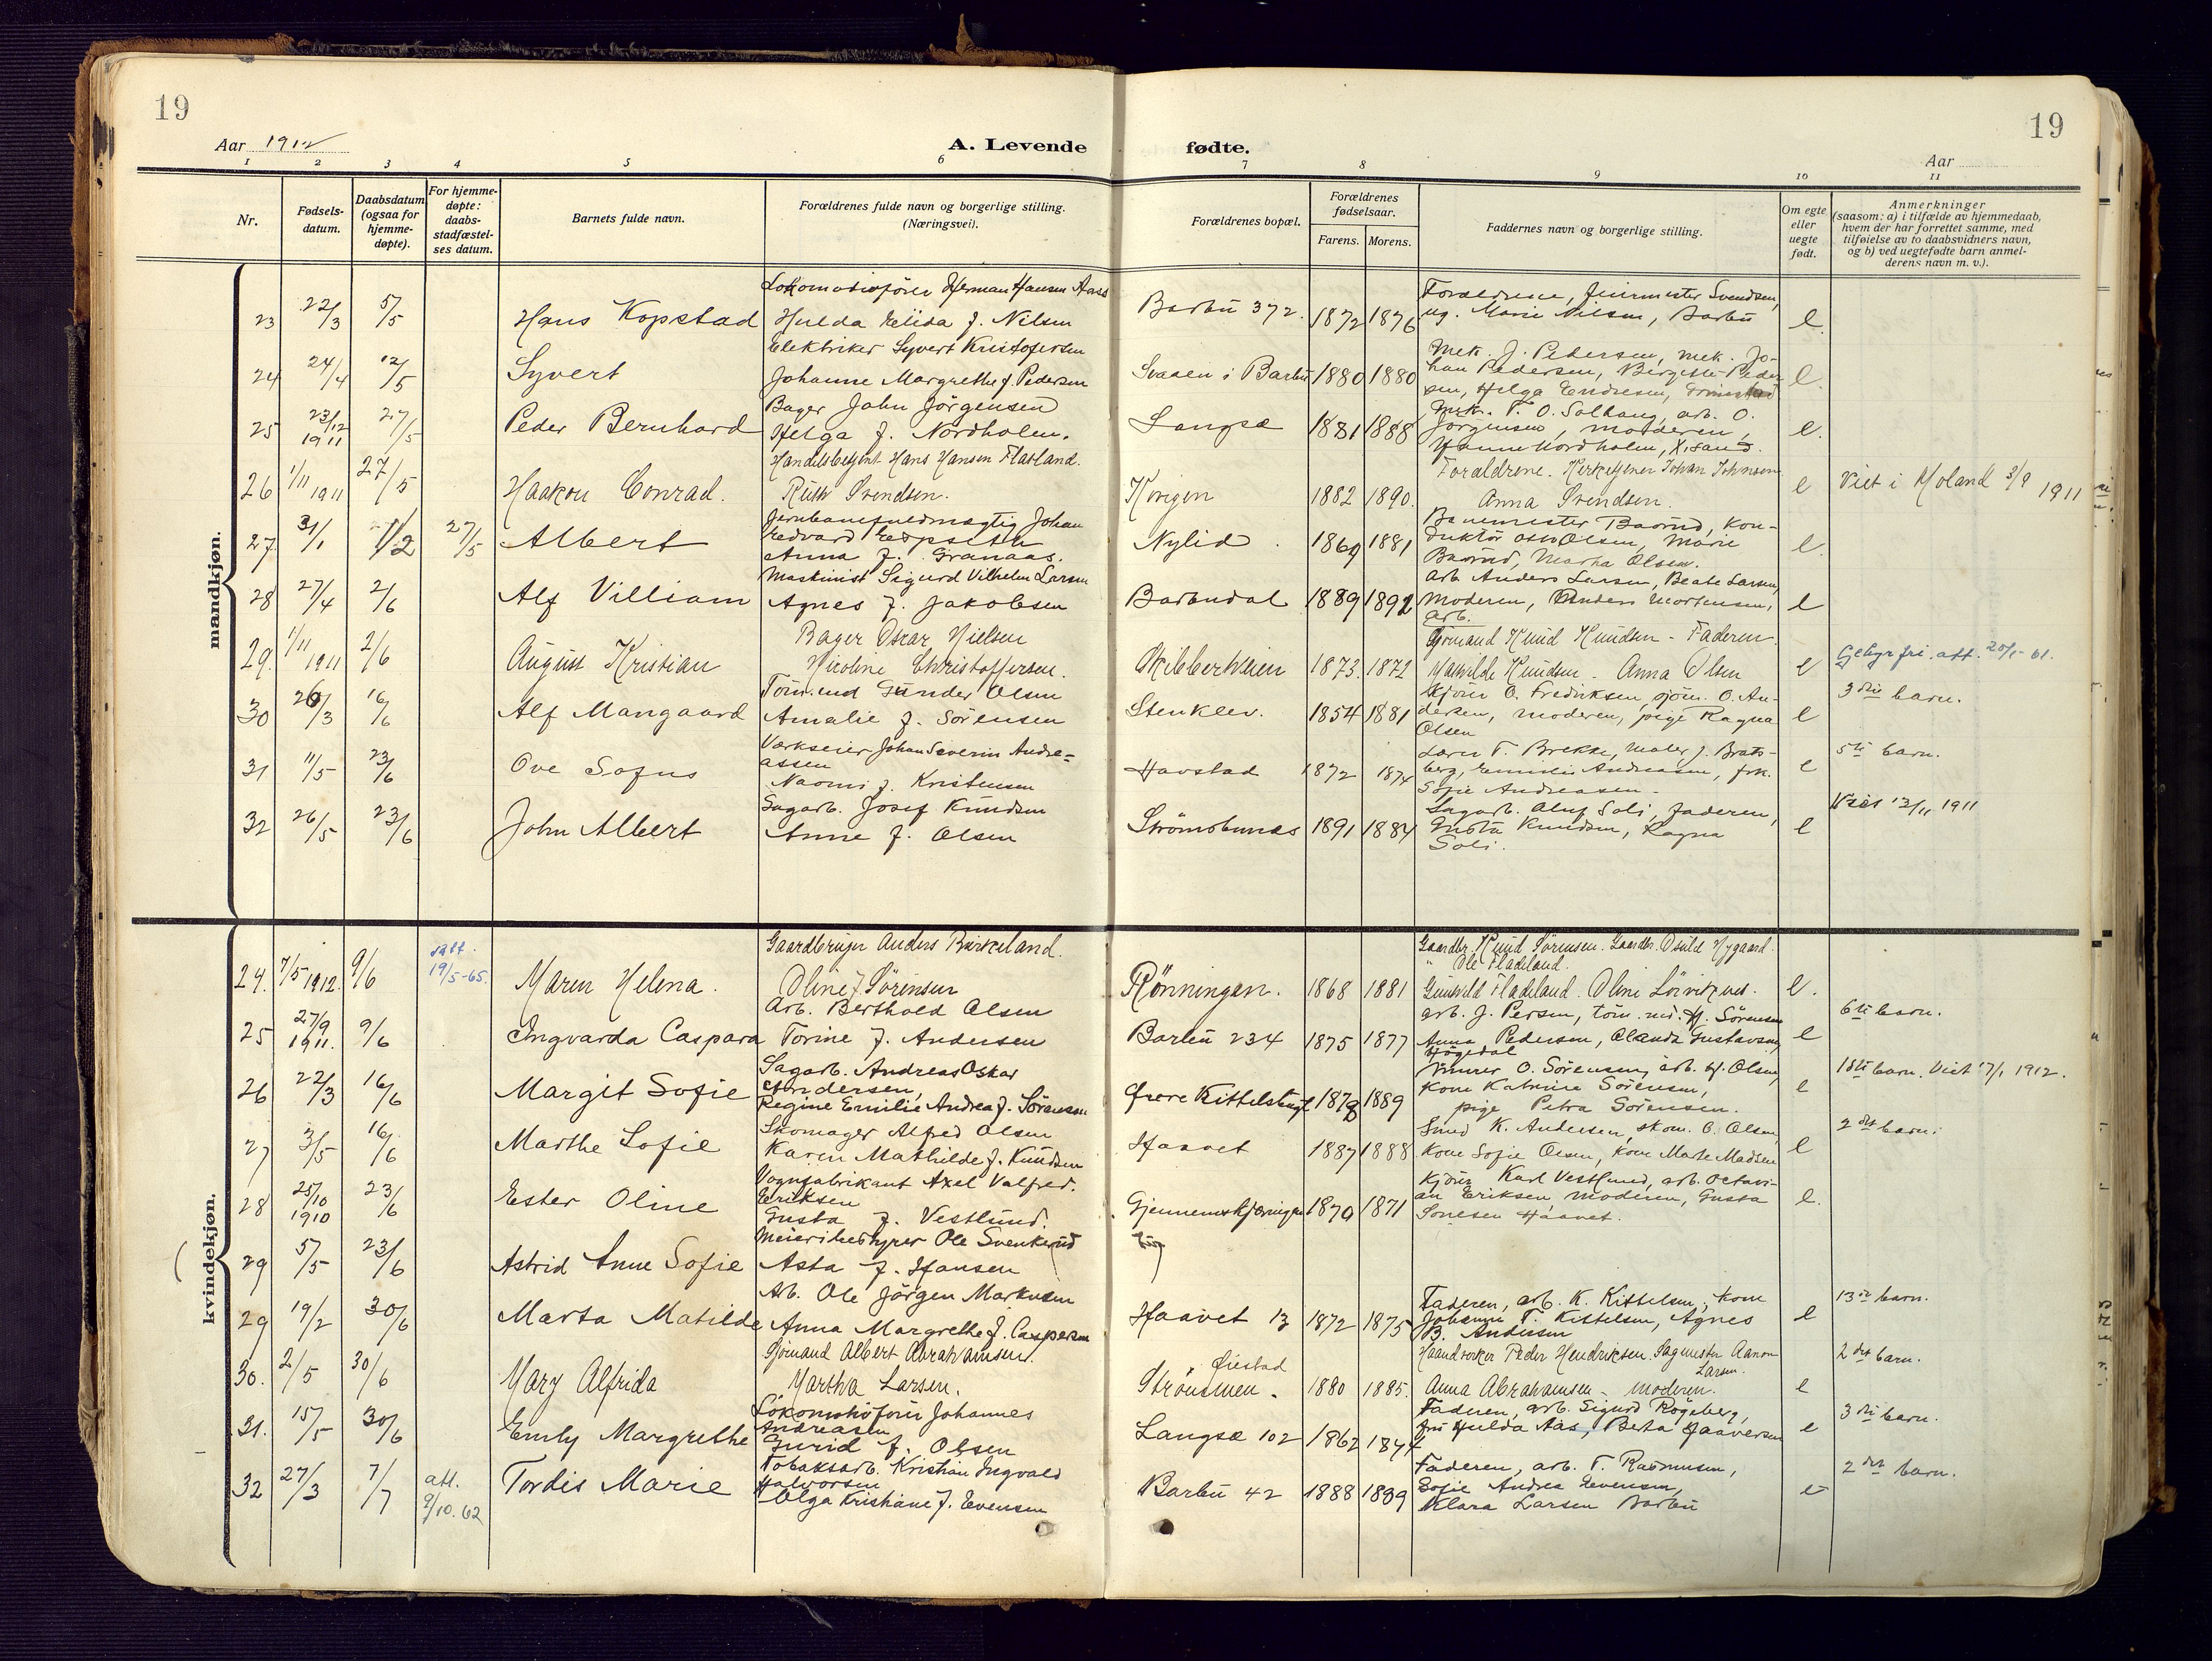 19
19
Aar 1912
A. Levende
fødte.
Aar
1 2 3 4 5 6 7 8 9 10 11
Nr.
Fødsels-
datum.
Daabsdatum
(ogsaa for
hjemme-
døpte).
For hjemme-
døpte:
daabs-
stadfæstel-
ses datum.
Barnets fulde navn.
Forældrenes fulde navn og borgerlige stilling.
(Næringsvei).
Forældrenes bopæl.
Forældrenes
fødselsaar.
Farens. Morens.
Faddernes navn og borgerlige stilling.
Om egte
eller
uegte
født.
Anmerkninger
(saasom: a) i tilfælde av hjemmedaab,
hvem der har forrettet samme, med
tilføielse av to daabsvidners navn,
og b) ved uegtefødte barn anmel-
derens navn m. v.).
mandkjøn.
23 22/3 5/5 Hans Kopstad
Lokomotivfører Herman Hansen Aass
Hulda Elida f. Nilsen
Barbu 372. 1872 1876
Forældrene, feiermester Svendsen,
ug. Marie Nilsen, Barbu
e.
24 24/4 12/5 Syvert
Elektriker Syvert Kristofersen
Johanne Margrethe f. Pedersen
Svaaen i Barbu 1880 1880
Mek. J. Pedersen, mek. Jo-
han Pedersen, Birgitte Peder
sen, Helga Endresen, Grimstad
e.
25 23/12 1911 27/5 Peder Bernhard
Bager John Jörgensen
Helga f. Nordholm.
Langsæ 1881 1888
T. O. Solhaug, arb. O.
Jörgensen, moderen,
Hanne Nordholm, X.sand.
e.
26 1/11 1911 27/5 Haakon Conrad.
Handelsbetjent Hans Hansen Flatland.
Ruth Svendsen.
1882 1890.
Forældrene. Kirketjener Johan Johnsen
Anna Svendsen.
e
Viet i Moland 3/9 1911
27 31/1 1/2 27/5 Albert
Jernbanefuldmægtig Johan
Edvard
Anna f. Granaas.
Nylid. 1869 1881
Banemester Baarud, Kon-
duktör Olsen, Marie
Baarud, Martha Olsen.
e.
28 27/4 2/6 Alf Villiam
Maskinist Sigurd Vilhelm Larsen
Agnes f. Jakobsen
Barbudal 1889 1892
Arb. Anders Larsen, Beate Larsen,
moderen, Anders Mortensen,
arb.
e
29. 1/11 1911 2/6 August Kristian
Bager Oscar Nielsen
Nicoline Christoffersen.
Skibberheien 1873. 1872
Sjömand Knud Knudsen - Faderen.
Mathilde Knudsen. Anna Olsen
e
Gebyrfri. att. 20/1-61.
30 26/3 16/6 Alf Mangaard
Tömmermd Gunder Olsen
Amalie f. Sörensen
Stenklev. 1854 1881
Kjörer O. Fredriksen, sjöm. O. An-
dersen, moderen, pige Ragna
Olsen
e
3die barn.
31 11/5 23/6 Ove Sofus
Værkseier Johan Severin Andre-
assen
Naomi f. Kristensen
Havstad 1872 1874
Lærer T. Brekke, maler J. Brats-
berg, Emilie Andreasen, frk.
Sofie Andreasen.
e
5te barn.
32 26/5 23/6 John Albert
Sagarb. Josef Knudsen
Anne f. Olsen
Strömsbunes 1891 1884
Sagarb. Oluf Soli, faderen,
Gusta Knudsen, Ragna
Soli.
e
Viet 12/11 1911
kvindekjøn.
24. 7/5 1912. 9/6 att. 19/5-65. Maren Helena.
Gaardbruger Anders Birkeland.
Oline f Sörensen
Rönningen. 1868 1881
Gaardbr. Knud Sörensen. Gaardbr. Osuld Nygaard.
" Ole Fladeland.
Gunhild Fladeland. Oline
e.
25 27/9 1911. 9/6 Ingvarda Caspara
Arb. Berthold Olsen
Torine f. Andersen
Barbu 234 1875 1877
arb. J. Persen, töm.md. H. Sörensen
Anna Pedersen, Olanda Gustavsen,
Högedal
e
6te barn.
26 22/3 16/6 Margit Sofie
Sagarb. Andreas Oskar
Andersen,
Regine Emilie Andrea f. Sörensen
Övre Kittelsbugt 1878 1889
Murer O. Sörensen, arb. H. Olsen,
kone Katrine Sörensen,
pige Petra Sörensen.
e
1ste barn. Viet 17/1 1912.
27 3/5 16/6 Marthe Sofie
Skomager Alfred Olsen
Karen Mathilde f. Knudsen
Haavet 1887 1888
Smed K. Andersen, skom. O. Olsen,
kone Sofie Olsen, kone Marte Madsen
e
2det barn.
28 25/10 1910 23/6 Ester Oline
Vognfabrikant Axel Valfred.
Eriksen
Gusta f. Vestlund.
Gjennemskjæringen 1870 1871
Kjörer Karl Vestlund, arb. Octavi-
an Eriksen, moderen, Gusta
Haavet.
e.
29 5/5 23/6 Astrid Anne Sofie
Meieribestyrer Ole Svenkerud
Asta f. Hansen
29 19/2 30/6 Marta Matilde
Arb. Ole Jörgen Markusen
Anna Margrethe f. Caspersen
Haavet 13 1872 1875
Faderen, arb. K. Kittelsen, kone
Johanne T. Kittelsen, Agnes
B. Andersen
e
13de barn.
30. 2/5 30/6 Mary Alfrida
Sjömand Albert Abrahamsen.
Martha Larsen.
Strömmen. Öiestad 1880 1885.
Haandverker Peder Hendriksen. Sagmester Aanon
Larsen.
Anna Abrahamsen - moderen.
e
2det barn.
31. 15/5 30/6 Emly Margrethe
Lokomotivförer Johannes
Andreasen
Gurid f. Olsen
Langsæ 102 1862 1874
Faderen, arb. Sigurd Rögeberg,
fru Hulda Aas, Berta Haaversen
e
3die barn.
32 27/3 7/7 att. 9/10.62 Tordis Marie
Tobaksarb. Kristian Ingvald
Halvorsen
Olga Kristiane f. Evensen
Barbu 42 1888 1889
Faderen, arb. T. Rasmusen,
Sofie Andrea Evensen,
Klara Larsen Barbu
e
2det barn.